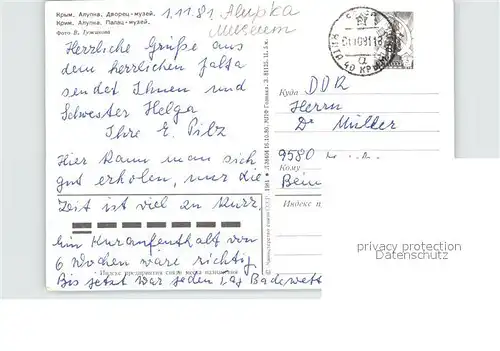 Крым. Алупка. Дворец-музей.
Крим. Алупка. Палац-музей.
Фото В. Тужикова
1.11.81 Alupka
Museum
Herrliche Grüße aus
dem herrlichen Jalta
sendet Ihnen und
Schwester Helga
Ihre E. Pilz
Hier kann man sich
gut erholen, nur die
Zeit ist viel zu kurz.
Ein Kuraufenthalt von
6 Wochen wäre richtig
Индекс предприятия связи места назначения
Bis jetzt war jeden Tag Badewett
Куда DDR
Herrn
Dr Müller
9580
Кому
Индекс п
privacy protection
Datenschutz